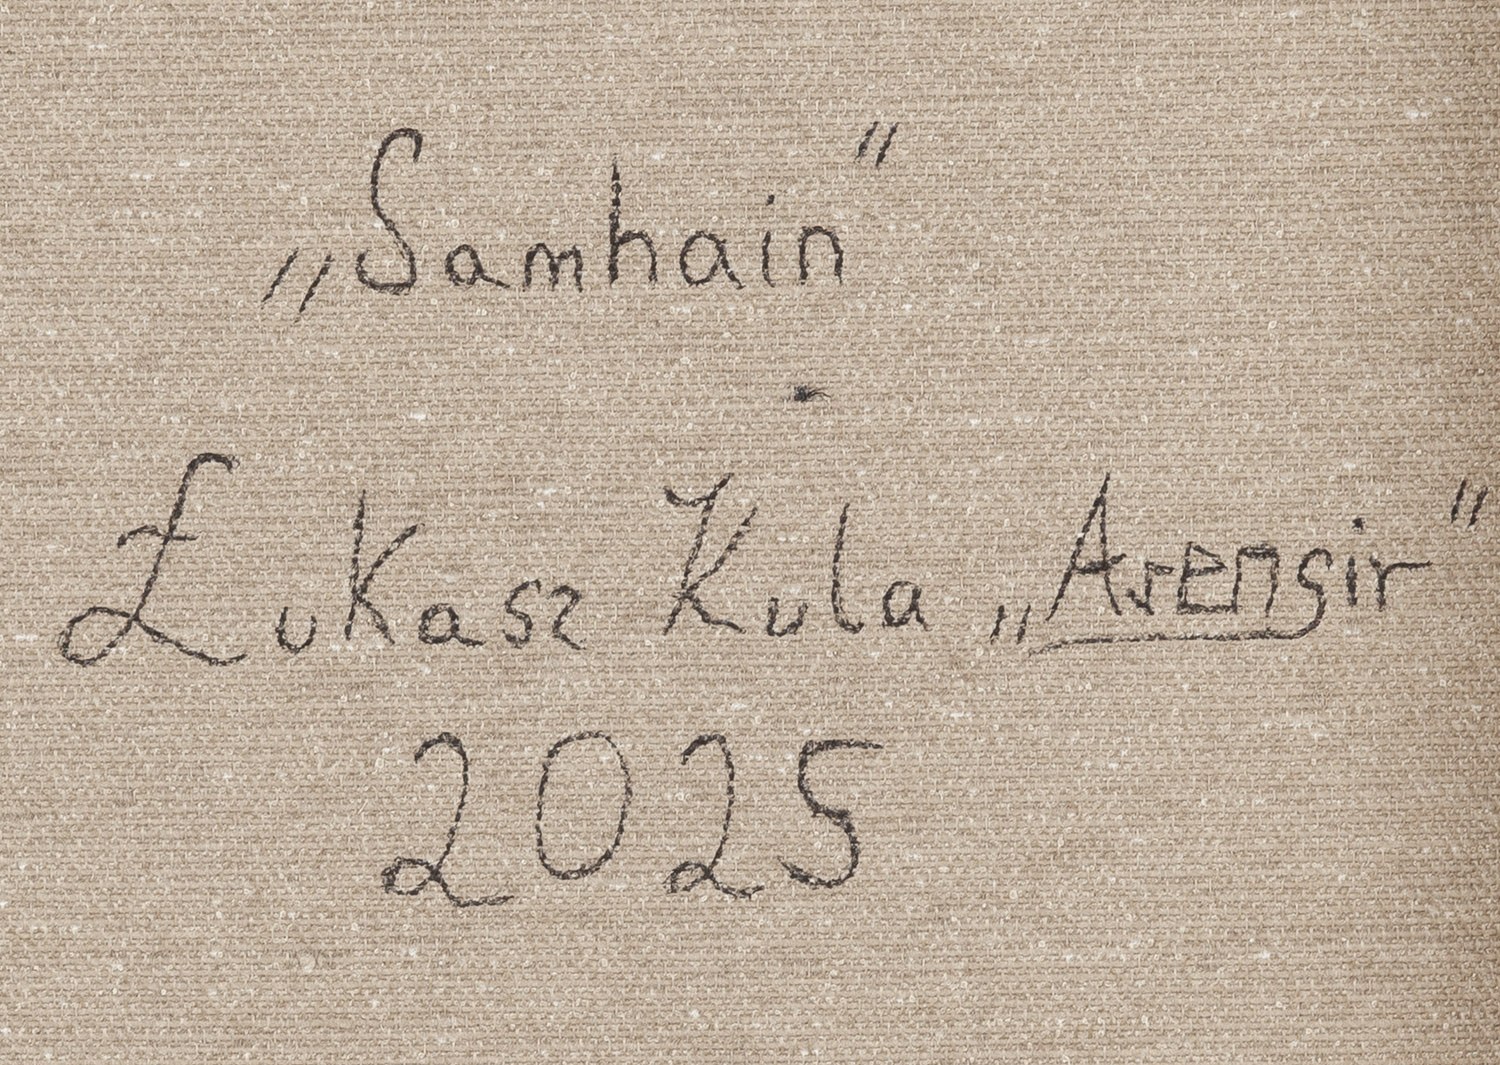 „Samhain"
Łukasz Kula „Arengir"
2025